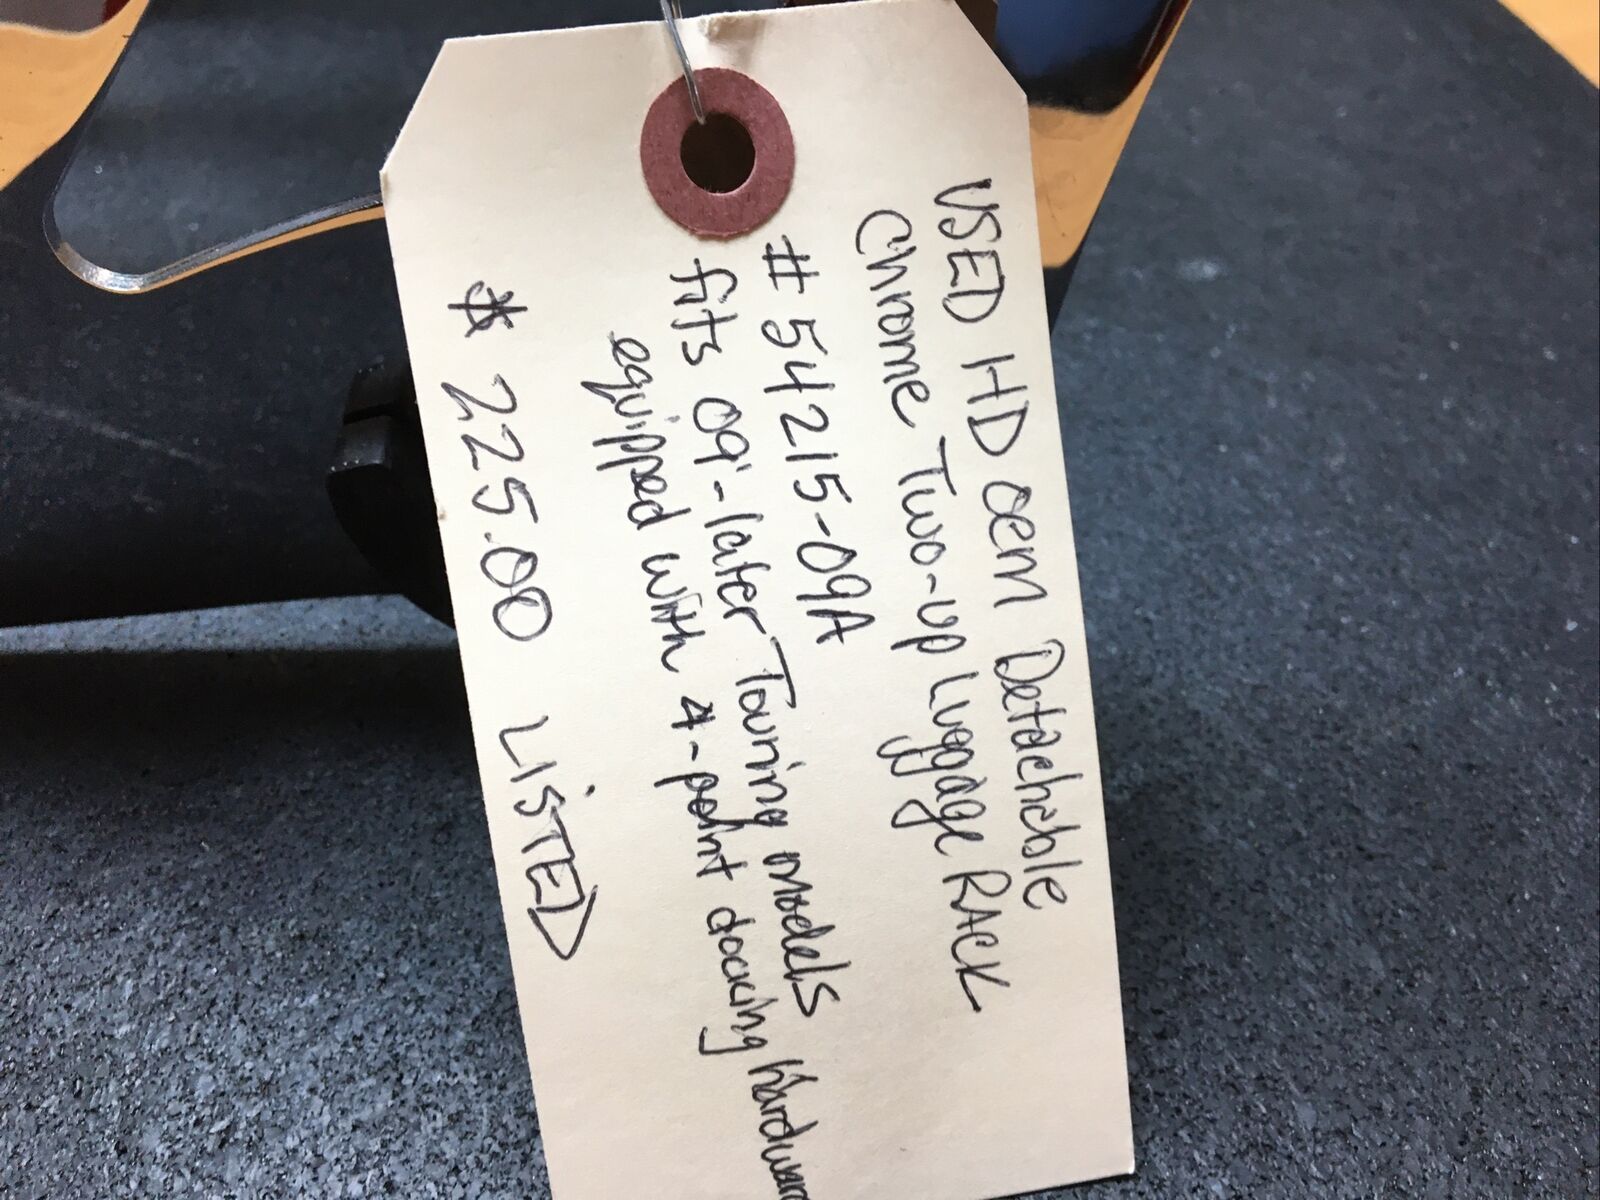 USED HD OEM Detachable
Chrome Two-up Luggage RACK
# 54215-09A
fits 09'-later Touring models
equipped with 4-point docking hardware
$ 225.00 LISTED